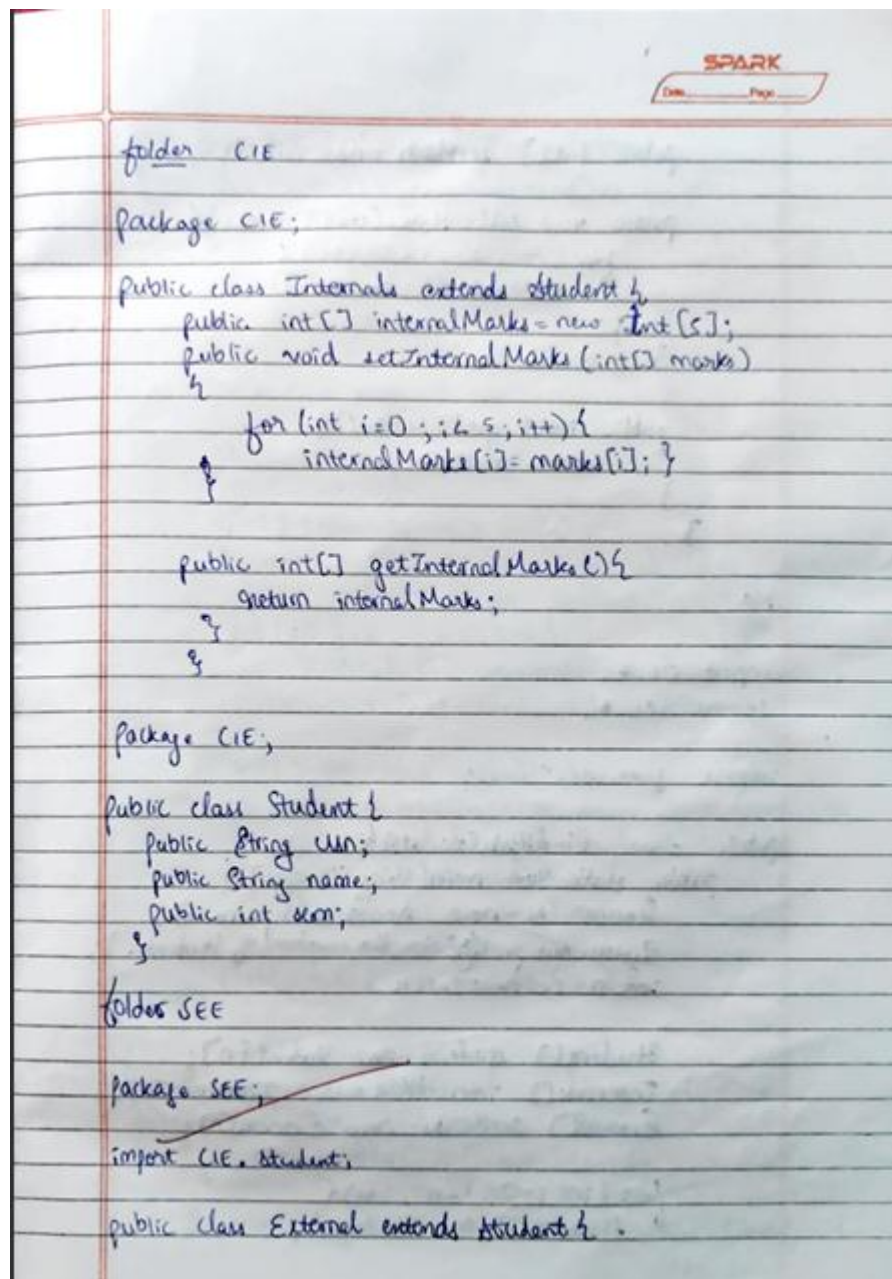 SPARK
Date Page
folder CIE
package CIE;
public class Internals extends Student {
public int[] internalMarks = new Int[5];
public void setInternalMarks (int[] marks)
{
for (int i=0 ; i< 5; i++) {
internalMarks[i]= marks[i]; }
}
public int[] getInternalMarks () {
return internalMarks;
}
}
package CIE;
public class Student {
public String usn;
public String name;
public int sem;
}
folder SEE
package SEE;
import CIE. Student;
public class External extends Student {